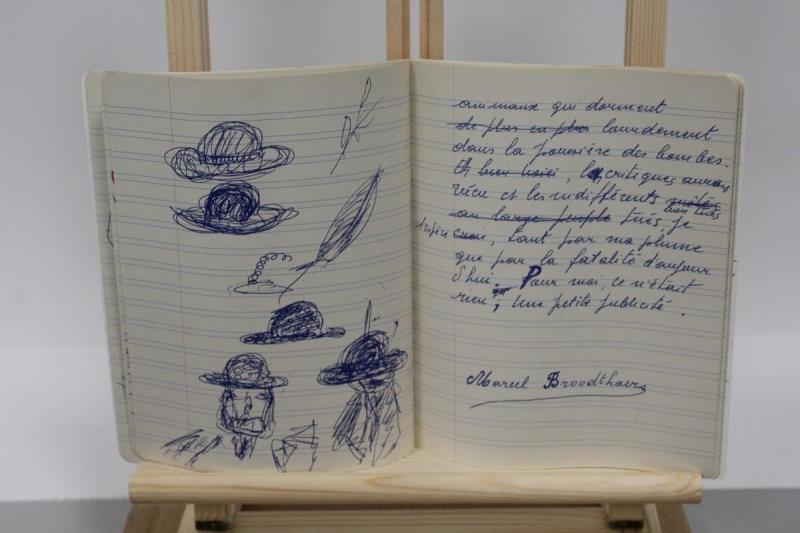 animaux qui dorment
de plus en plus lourdement
dans la poussière des bombes.
Et bien voici, les critiques auront
vécu et les indifférents
bien tués
au large peuple tués je
espère crois, tant par ma plume
que par la fatalité d'aujour
d'hui. Pour moi, ce n'était
rien; Une petite publicité.
Marcel Broodthaers